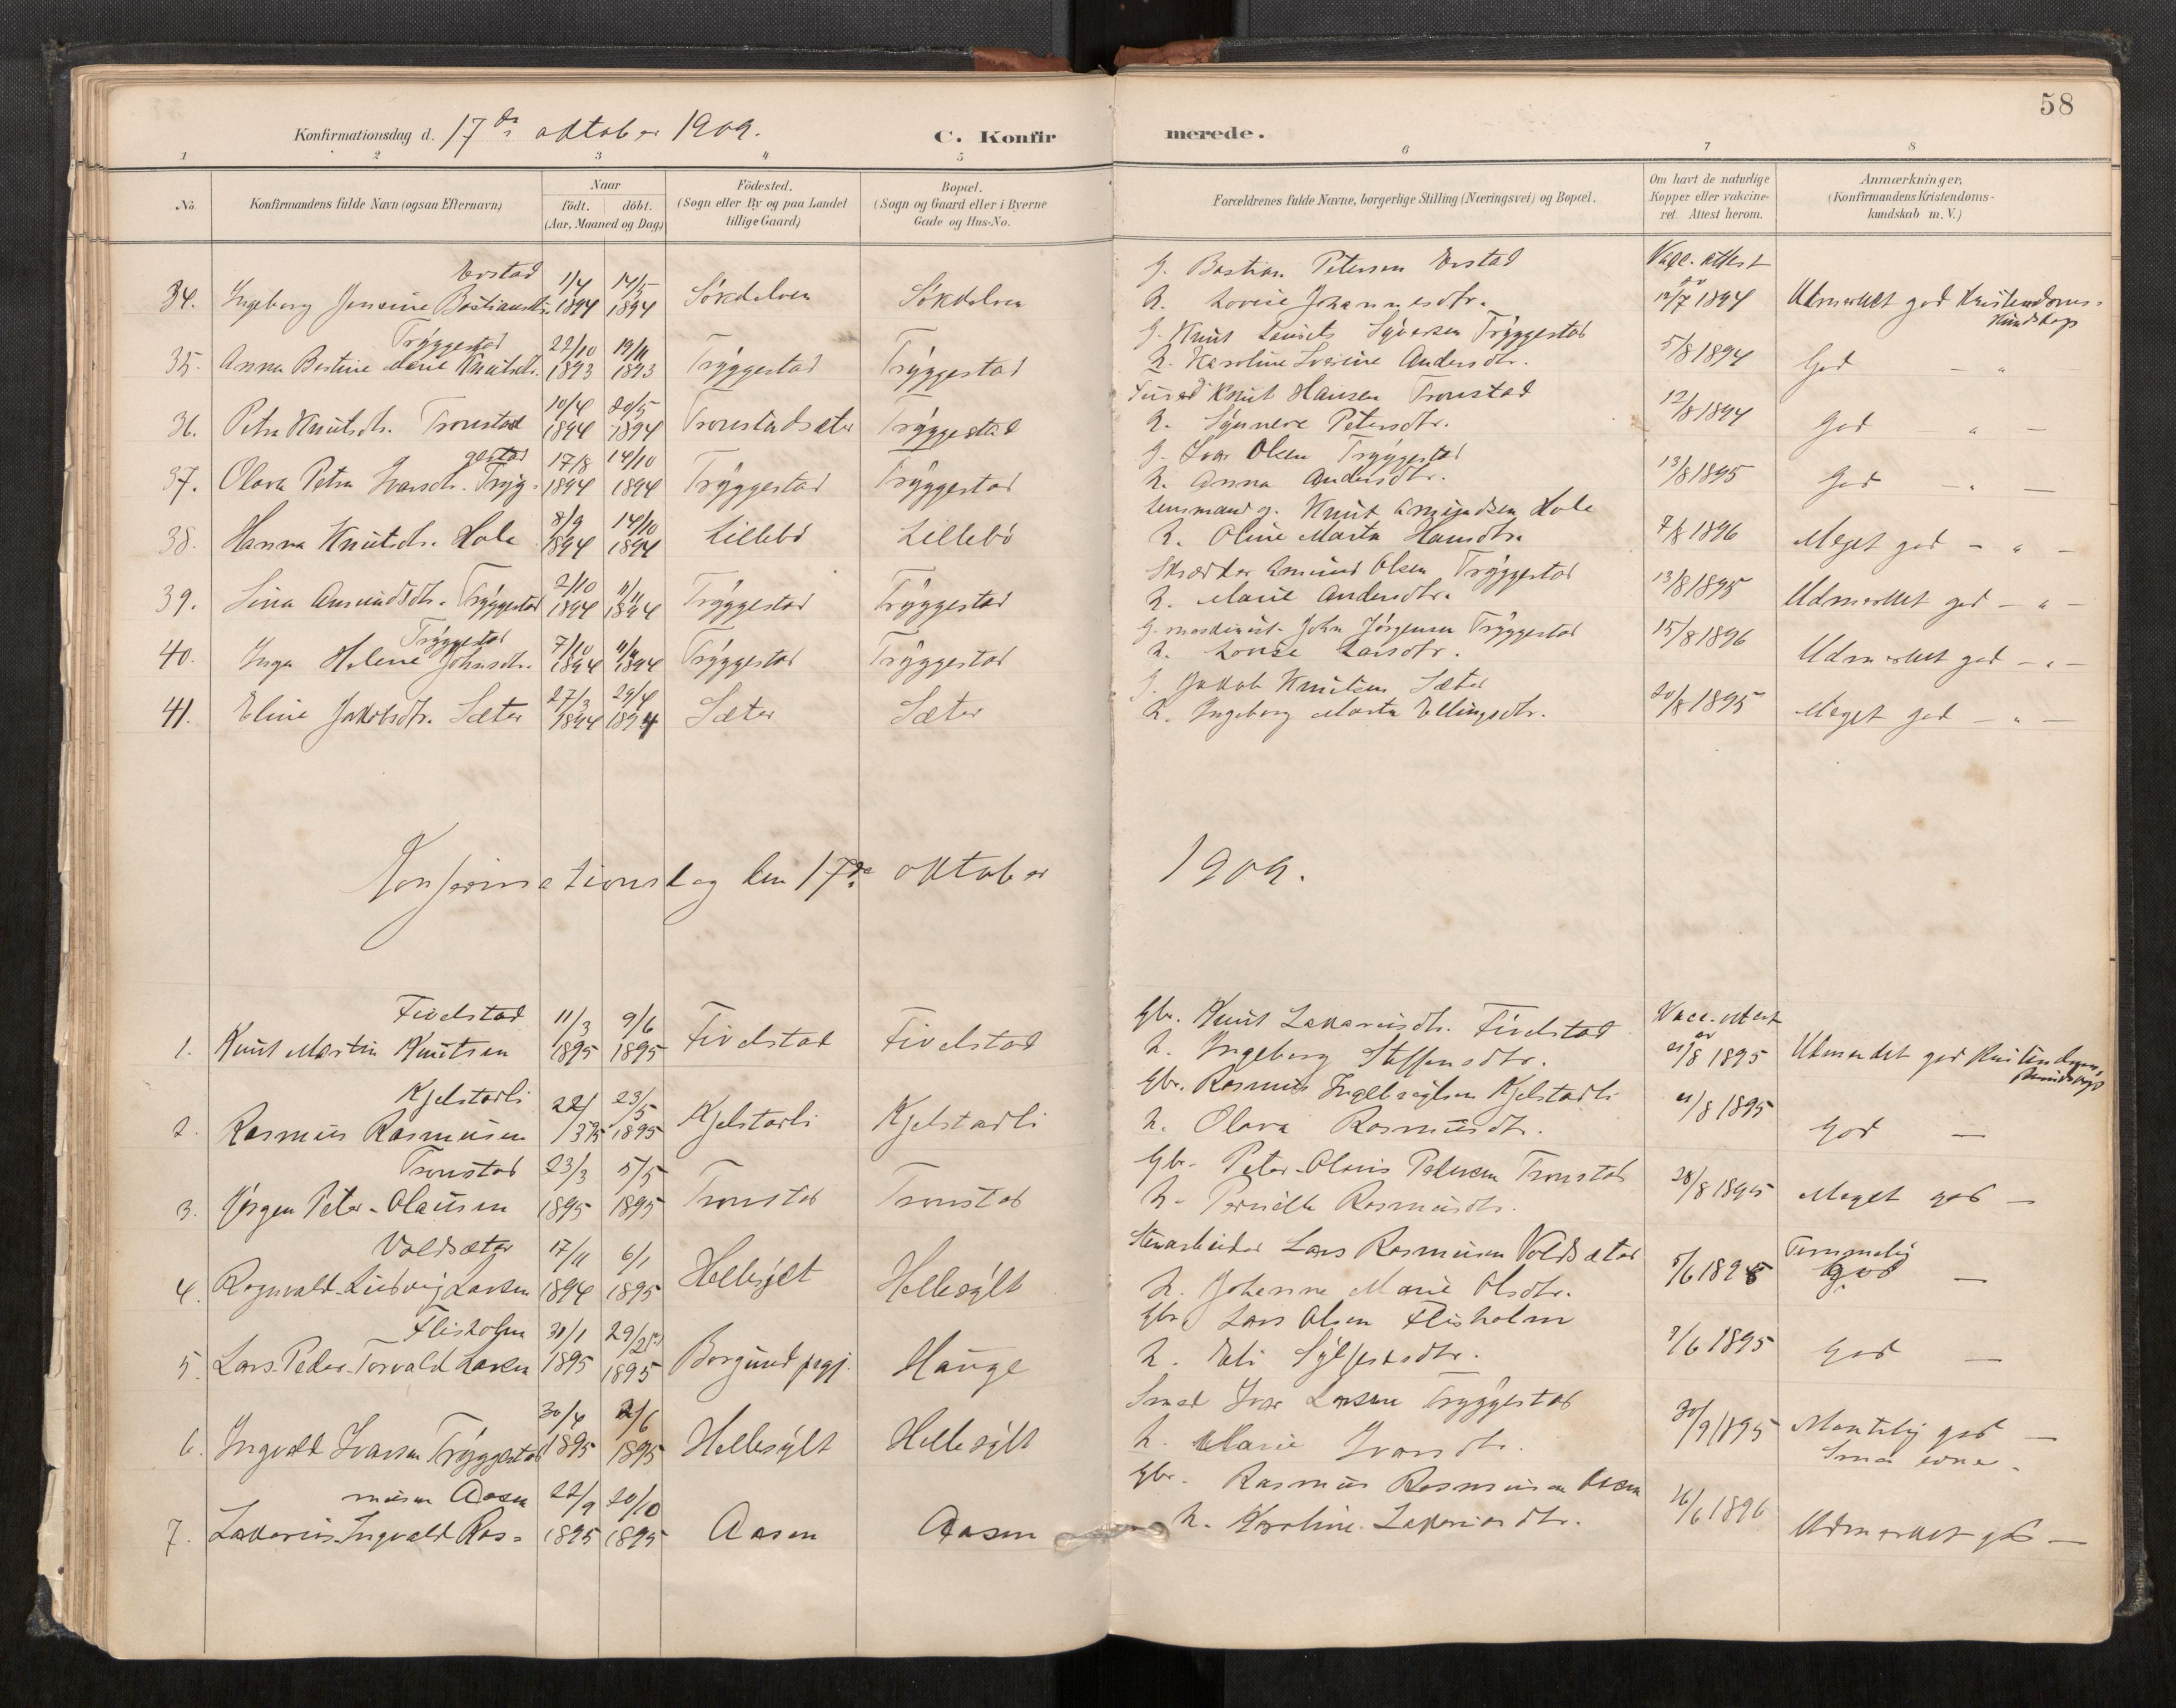 58
Konfirmationsdag d. 17de oktober 1909.
C. Konfirmerede.
1 2 3 4 5 6 7 8
No.
Konfirmandens fulde Navn (ogsaa Efternavn)
Naar
Födt. döbt.
(Aar, Maaned og Dag)
Födested.
(Sogn eller By og paa Landet
tillige Gaard)
Bopæl.
(Sogn og Gaard eller i Byerne
Gade og Hus-No.
Forældrenes fulde Navne, borgerlige Stilling (Næringsvei) og Bopæl.
Om havt de naturlige
Kopper eller vakcine-
ret. Attest herom.
Anmærkninger,
(Konfirmandens Kristendoms-
kundskab m. V.)
Erstad 1/4 14/5 G. Bastian Petersen Erstad Vacc. attest
34. Ingeborg Jensine Bastiansdtr. 1894 1894 Sökdalven Sökdalven h. Lovise Johannesdtr. av 12/7 1894 Udmerket god Kristendoms-
kundskap
Tryggestad 22/10 19/11 G. Knut Laurits Syversen Tryggestad
35. Anna Bestine Marie Knutsdtr. 1893 1893 Tryggestad Tryggestad h. Karoline Ivarine Andersdtr. 5/8 1894 God — " —
10/4 20/5 Knut Hansen Tronstad
36. Petra Knutsdtr. Tronstad 1894 1894 Tronstadsæter Tryggestad h. Synnere Petersdtr. 12/8 1894 God " —
gestad 17/8 14/10 G. Ivar Olsen Tryggestad
37. Olava Petra Ivarsdtr. Tryg- 1894 1894 Tryggestad Tryggestad h. Anna Andersdtr. 13/8 1895 God — " —
8/9 14/10 Lensmand g. Knut Amundsen Hole
38. Hanna Knutsdtr. Hole 1894 1894 Lillebö Lillebö h. Oline Marta Hansdtr. 7/8 1896 Meget god — " —
2/10 11/11 Skrædder Amund Olsen Tryggestad
39. Lina Amundsdtr. Tryggestad 1894 1894 Tryggestad Tryggestad h. Marie Andersdtr. 13/8 1895 Udmerket god — " —
Tryggestad 7/10 11/11 G. maskinist John Jörgensen Tryggestad
40. Inga Helene Johnsdtr. 1894 1894 Tryggestad Tryggestad h. Lovise Larsdtr. 15/8 1896 Udmerket god — " —
27/3 29/4 G. Jakob Knutsen Sæter
41. Eline Jakobsdtr. Sæter 1894 1894 Sæter Sæter h. Ingeborg Marta Ellingsdtr. 20/8 1895 Meget god — " —
Konfirmationsdag den 17de oktober 1909.
Fivelstad 11/3 9/6 Gbr. Knut Fivelstad Vacc. attest
1. Knut Martin Knutsen 1895 1895 Fivelstad Fivelstad h. Ingeborg Steffensdtr. av 21/8 1895 Udmerket god Kristendoms-
kundskap
Kjelstadli 22/ 23/5 Gbr. Rasmus Ingebrigtsen Kjelstadli
2. Rasmus Rasmussen /3 95 1895 Kjelstadli Kjelstadli h. Olava Rasmusdtr. 21/8 1895 God —
Tronstad 23/3 5/5 Gbr. Peter-Olaus Petersen Tronstad
3. Jörgen Peter-Olausen 1895 1895 Tronstad Tronstad h. Pernille Rasmusdtr. 28/8 1895 Meget god —
Voldsæter 17/11 6/1 Stenarbeider Lars Rasmusen Voldsæter Temmelig
4. Ragnvald-Ludvig Larsen 1894 1895 Hellesylt Hellesylt h. Johanne Marie Olsdtr. 5/6 1895 god —
Flisholm 31/1 29/2(?) Gbr. Lars Olsen Flisholm
5. Lars-Peder-Torvald Larsen 1895 1895 Borgund prgj. Hauge h. Eli Sylfestsdtr. 7/6 1895 God —
30/4 2/6 Smed Ivar Larsen Tryggestad
6. Ingvald Ivarsen Tryggestad 1895 1895 Hellesylt Hellesylt h. Marie Ivarsdtr. 30/9 1895 god —
Smaa evner.
musen Aasen 22/9 20/10 Gbr. Rasmus Rasmusen Aasen
7. Zakarius-Ingvald Ras- 1895 1895 Aasen Aasen h. Karoline Zakariasdtr. 16/6 1896 Udmerket god —